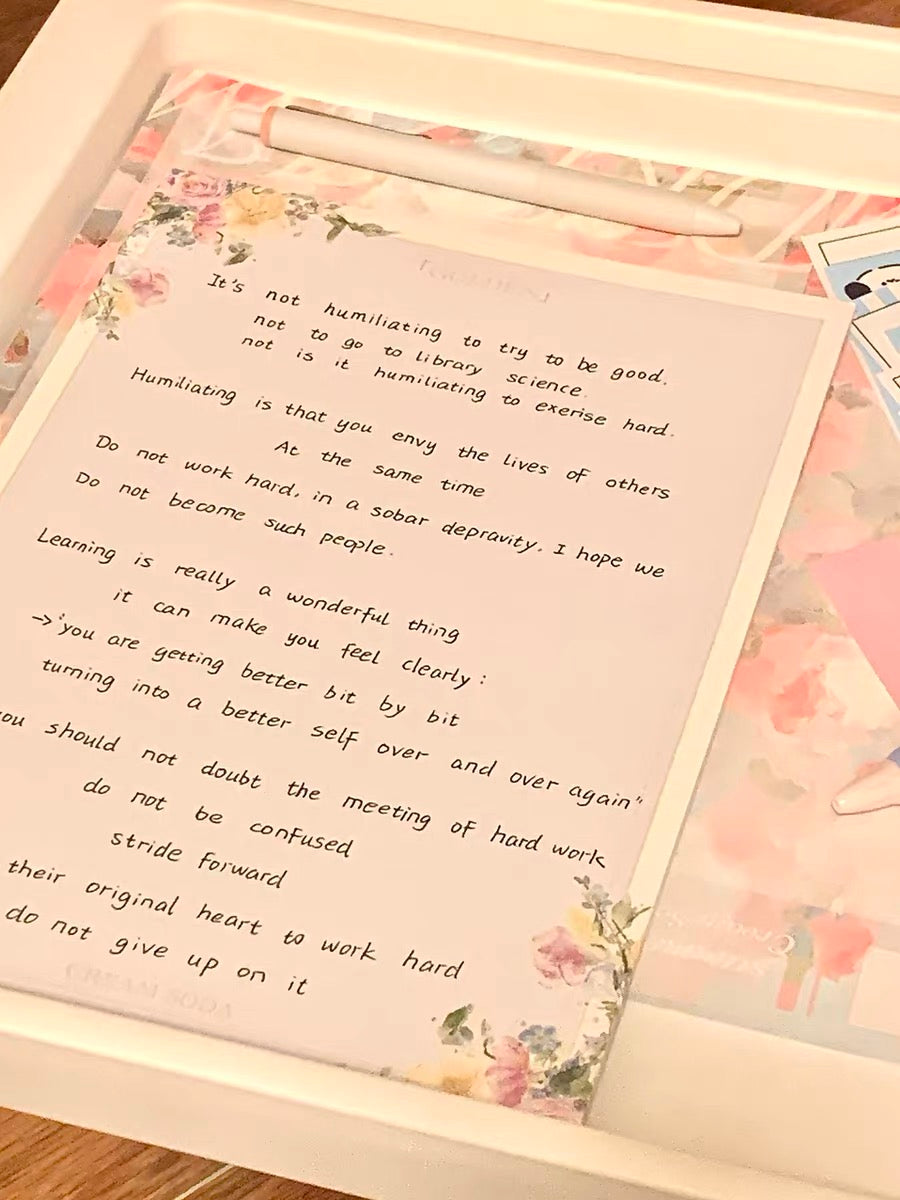 It's not humiliating to try to be good.
not to go to library science.
not is it humiliating to exerise hard.
Humiliating is that you envy the lives of others
At the same time
Do not work hard, in a sobar depravity. I hope we
Do not become such people.
Learning is really a wonderful thing
it can make you feel clearly :
→ "you are getting better bit by bit
turning into a better self over and over again"
ou should not doubt the meeting of hard work
do not be confused
stride forward
their original heart to work hard
do not give up on it